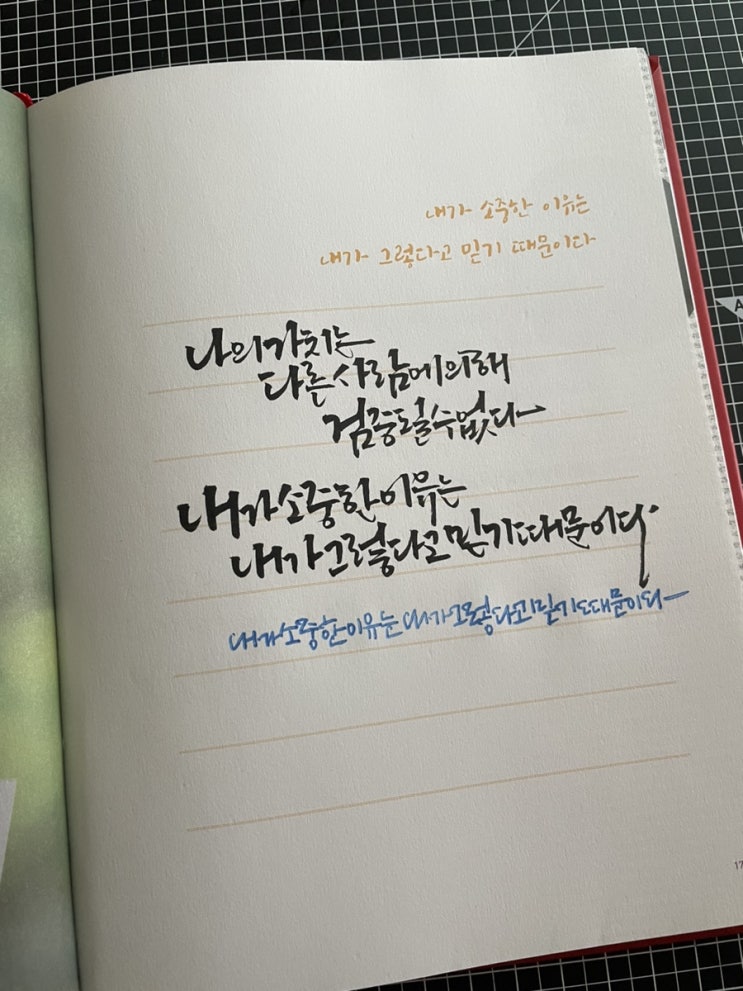 내가 소중한 이유는
내가 그렇다고 믿기 때문이다
나의 가치는
다른 사람에 의해
검증될 수 없다
내가 소중한 이유는
내가 그렇다고 믿기 때문이다.
내가 소중한 이유는 내가 그렇다고 믿기 때문이다
17
A